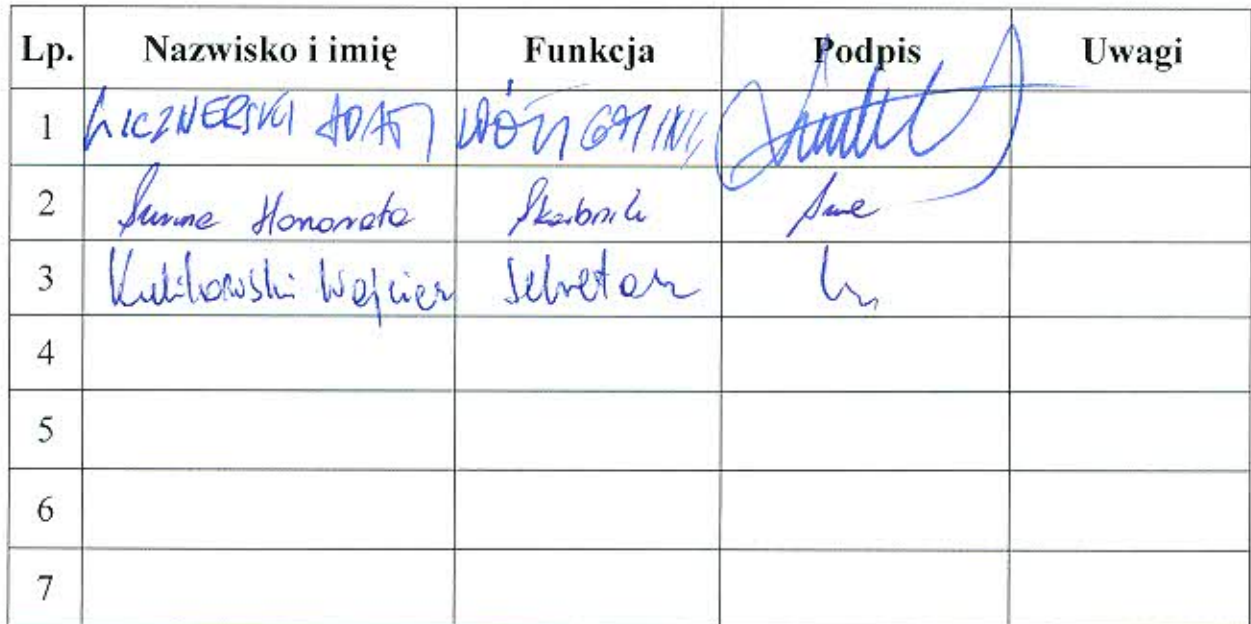 Lp. Nazwisko i imię Funkcja Podpis Uwagi
1 LICZNERSKI ADAM WÓJT GMINY
2 Honorata Skarbnik
3 Kulikowski Wojciech Sekretarz
4
5
6
7